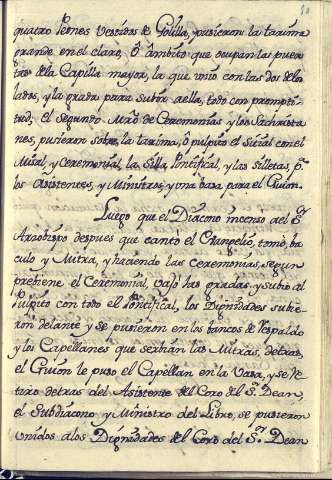 quatro Peones Vestidos de Golilla, pusieron la tarima
grande en el claro, ô ambito que ocupan las puer
tas de la Capilla mayor, la que unió con las dos de los
lados, y la grada para subir a ella, todo con prompti-
tud; el segundo Mrô. de Ceremonias y los Sachrista
nes, pusieron sobre la tarima, ô pulpito el Sitial con el
Misal, y Ceremonial, la Silla Pontifical, y las silletas, pª.
los Asistentes, y Ministros, y una basa para el Guion.
Luego que el Diacono incensó al Sr.
Arzobispo despues que cantó el Evangelio, tomó ba
culo y Mitra, y haciendo las Ceremonias, segun
prebiene el Ceremonial, vajó las gradas, y subió al
Pulpito con todo el Pontifical, los Dignidades subie-
ron delante y se pusieron en los bancos de respaldo
y los Capellanes que serbian las Mitras, detras,
el Guion le puso el Capellan en la Vasa, y se re
tiró detras del Asistente del Coro del Sr. Dean,
el Subdiacono y Ministro del Libro, se pusieron
unidos a los Dignidades del Coro del Sr. Dean